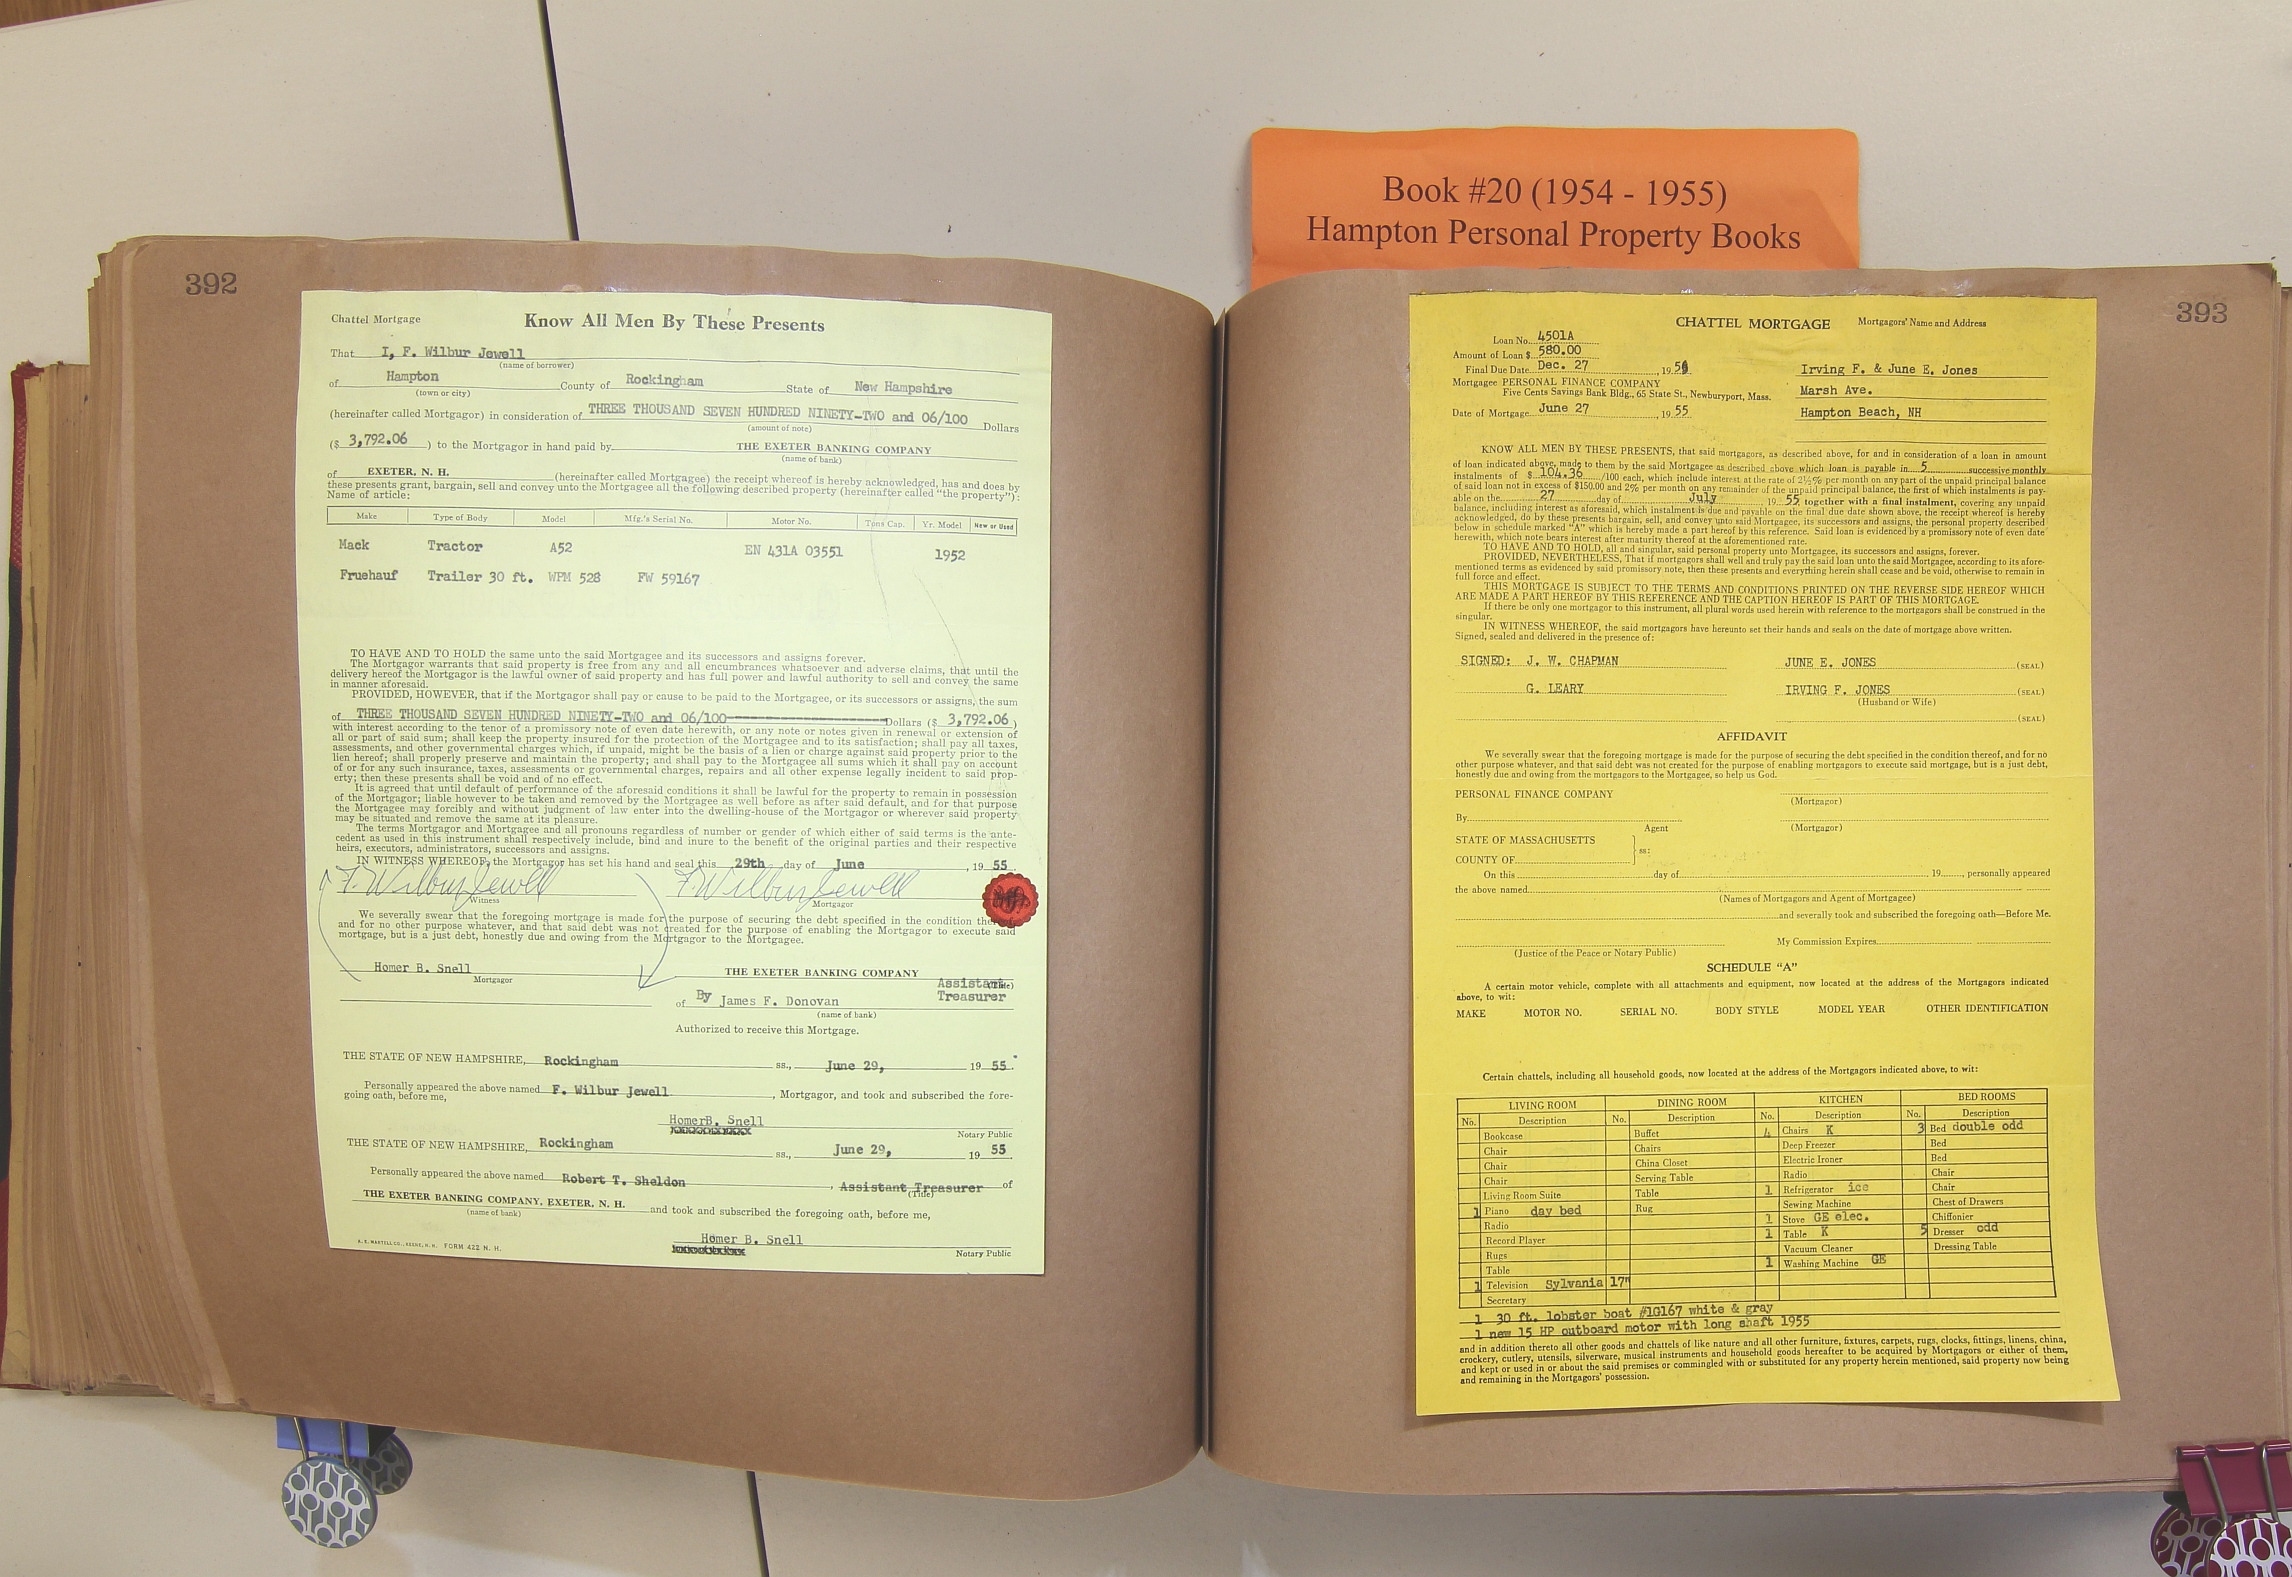 Book #20 (1954 - 1955)
Hampton Personal Property Books
392
Chattel Mortgage
Know All Men By These Presents
That I, F. Wilbur Jewell
(name of borrower)
of Hampton County of Rockingham State of New Hampshire
(town or city)
(hereinafter called Mortgagor) in consideration of THREE THOUSAND SEVEN HUNDRED NINETY-TWO and 06/100 Dollars
(amount of note)
($ 3,792.06 ) to the Mortgagor in hand paid by THE EXETER BANKING COMPANY
(name of bank)
of EXETER, N. H. (hereinafter called Mortgagee) the receipt whereof is hereby acknowledged, has and does by
these presents grant, bargain, sell and convey unto the Mortgagee all the following described property (hereinafter called "the property"):
Name of article:
Make Type of Body Model Mfg.'s Serial No. Motor No. Tons Cap. Yr. Model New or Used
Mack Tractor A52 EN 431A 03551 1952
Fruehauf Trailer 30 ft. WPM 528 FW 59167
TO HAVE AND TO HOLD the same unto the said Mortgagee and its successors and assigns forever.
The Mortgagor warrants that said property is free from any and all encumbrances whatsoever and adverse claims, that until the
delivery hereof the Mortgagor is the lawful owner of said property and has full power and lawful authority to sell and convey the same
in manner aforesaid.
PROVIDED, HOWEVER, that if the Mortgagor shall pay or cause to be paid to the Mortgagee, or its successors or assigns, the sum
of THREE THOUSAND SEVEN HUNDRED NINETY-TWO and 06/100--------------------Dollars ($ 3,792.06 )
with interest according to the tenor of a promissory note of even date herewith, or any note or notes given in renewal or extension of
all or part of said sum; shall keep the property insured for the protection of the Mortgagee and to its satisfaction; shall pay all taxes,
assessments, and other governmental charges which, if unpaid, might be the basis of a lien or charge against said property prior to the
lien hereof; shall properly preserve and maintain the property; and shall pay to the Mortgagee all sums which it shall pay on account
of or for any such insurance, taxes, assessments or governmental charges, repairs and all other expense legally incident to said prop-
erty; then these presents shall be void and of no effect.
It is agreed that until default of performance of the aforesaid conditions it shall be lawful for the property to remain in possession
of the Mortgagor; liable however to be taken and removed by the Mortgagee as well before as after said default, and for that purpose
the Mortgagee may forcibly and without judgment of law enter into the dwelling-house of the Mortgagor or wherever said property
may be situated and remove the same at its pleasure.
The terms Mortgagor and Mortgagee and all pronouns regardless of number or gender of which either of said terms is the ante-
cedent as used in this instrument shall respectively include, bind and inure to the benefit of the original parties and their respective
heirs, executors, administrators, successors and assigns.
IN WITNESS WHEREOF, the Mortgagor has set his hand and seal this 29th day of June , 19 55.
F. Wilbur Jewell F. Wilbur Jewell
Witness Mortgagor
We severally swear that the foregoing mortgage is made for the purpose of securing the debt specified in the condition thereof,
and for no other purpose whatever, and that said debt was not created for the purpose of enabling the Mortgagor to execute said
mortgage, but is a just debt, honestly due and owing from the Mortgagor to the Mortgagee.
Homer B. Snell THE EXETER BANKING COMPANY
Mortgagor Assistant (Title)
of By James F. Donovan Treasurer
(name of bank)
Authorized to receive this Mortgage.
THE STATE OF NEW HAMPSHIRE, Rockingham ss., June 29, 19 55.
Personally appeared the above named F. Wilbur Jewell , Mortgagor, and took and subscribed the fore-
going oath, before me,
HomerB. Snell
Notary Public
THE STATE OF NEW HAMPSHIRE, Rockingham ss., June 29, 19 55
Personally appeared the above named Robert T. Sheldon , Assistant Treasurer of
(Title)
THE EXETER BANKING COMPANY, EXETER, N. H. and took and subscribed the foregoing oath, before me,
(name of bank)
Homer B. Snell
Notary Public
A. E. MARTELL CO., KEENE, N. H. FORM 422 N. H.
393
CHATTEL MORTGAGE Mortgagors' Name and Address
Loan No. 4501A
Amount of Loan $ 580.00
Final Due Date Dec. 27 , 19 5
Mortgagee PERSONAL FINANCE COMPANY
Five Cents Savings Bank Bldg., 65 State St., Newburyport, Mass.
Date of Mortgage June 27 , 19 55
Irving F. & June E. Jones
Marsh Ave.
Hampton Beach, NH
KNOW ALL MEN BY THESE PRESENTS, that said mortgagors, as described above, for and in consideration of a loan in amount
of loan indicated above, made to them by the said Mortgagee as described above which loan is payable in 5 successive monthly
instalments of $ 104.36 /100 each, which include interest at the rate of 2½% per month on any part of the unpaid principal balance
of said loan not in excess of $150.00 and 2% per month on any remainder of the unpaid principal balance, the first of which instalments is pay-
able on the 27 day of July 19 55 together with a final instalment, covering any unpaid
balance, including interest as aforesaid, which instalment is due and payable on the final due date shown above, the receipt whereof is hereby
acknowledged, do by these presents bargain, sell, and convey unto said Mortgagee, its successors and assigns, the personal property described
below in schedule marked "A" which is hereby made a part hereof by this reference. Said loan is evidenced by a promissory note of even date
herewith, which note bears interest after maturity thereof at the aforementioned rate.
TO HAVE AND TO HOLD, all and singular, said personal property unto Mortgagee, its successors and assigns, forever.
PROVIDED, NEVERTHELESS, That if mortgagors shall well and truly pay the said loan unto the said Mortgagee, according to its afore-
mentioned terms as evidenced by said promissory note, then these presents and everything herein shall cease and be void, otherwise to remain in
full force and effect.
THIS MORTGAGE IS SUBJECT TO THE TERMS AND CONDITIONS PRINTED ON THE REVERSE SIDE HEREOF WHICH
ARE MADE A PART HEREOF BY THIS REFERENCE AND THE CAPTION HEREOF IS PART OF THIS MORTGAGE.
If there be only one mortgagor to this instrument, all plural words used herein with reference to the mortgagors shall be construed in the
singular.
IN WITNESS WHEREOF, the said mortgagors have hereunto set their hands and seals on the date of mortgage above written.
Signed, sealed and delivered in the presence of:
SIGNED: J. W. CHAPMAN JUNE E. JONES (SEAL)
G. LEARY IRVING F. JONES (SEAL)
(Husband or Wife)
(SEAL)
AFFIDAVIT
We severally swear that the foregoing mortgage is made for the purpose of securing the debt specified in the condition thereof, and for no
other purpose whatever, and that said debt was not created for the purpose of enabling mortgagors to execute said mortgage, but is a just debt,
honestly due and owing from the mortgagors to the Mortgagee, so help us God.
PERSONAL FINANCE COMPANY
(Mortgagor)
By
Agent (Mortgagor)
STATE OF MASSACHUSETTS
ss:
COUNTY OF
On this day of , 19 , personally appeared
the above named
(Names of Mortgagors and Agent of Mortgagee)
and severally took and subscribed the foregoing oath—Before Me.
My Commission Expires
(Justice of the Peace or Notary Public)
SCHEDULE "A"
A certain motor vehicle, complete with all attachments and equipment, now located at the address of the Mortgagors indicated
above, to wit:
MAKE MOTOR NO. SERIAL NO. BODY STYLE MODEL YEAR OTHER IDENTIFICATION
Certain chattels, including all household goods, now located at the address of the Mortgagors indicated above, to wit:
LIVING ROOM DINING ROOM KITCHEN BED ROOMS
No. Description No. Description No. Description No. Description
Bookcase Buffet 4 Chairs K 3 Bed double odd
Chair Chairs Deep Freezer Bed
Chair China Closet Electric Ironer Bed
Chair Serving Table Radio Chair
Living Room Suite Table 1 Refrigerator ice Chair
1 Piano day bed Rug Sewing Machine Chest of Drawers
Radio 1 Stove GE elec. Chiffonier
Record Player 1 Table K 5 Dresser odd
Rugs Vacuum Cleaner Dressing Table
Table 1 Washing Machine GE
1 Television Sylvania 17"
Secretary
1 30 ft. lobster boat #1G167 white & gray
1 new 15 HP outboard motor with long shaft 1955
and in addition thereto all other goods and chattels of like nature and all other furniture, fixtures, carpets, rugs, clocks, fittings, linens, china,
crockery, cutlery, utensils, silverware, musical instruments and household goods hereafter to be acquired by Mortgagors or either of them,
and kept or used in or about the said premises or commingled with or substituted for any property herein mentioned, said property now being
and remaining in the Mortgagors' possession.